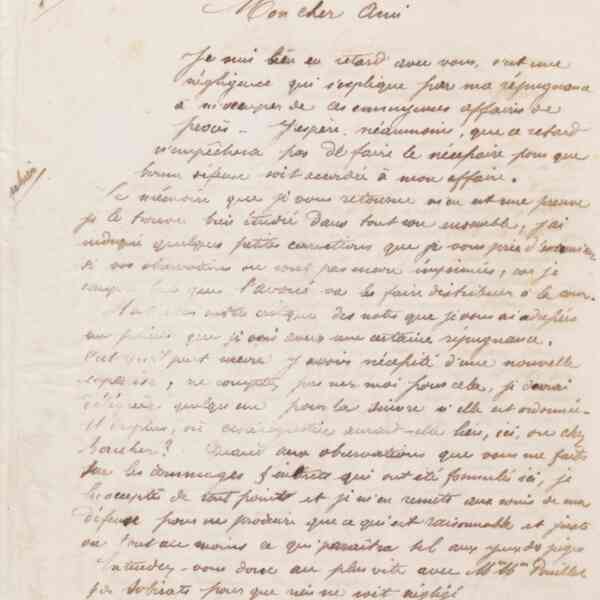 Mon cher Ami
Je suis bien en retard avec vous, c'est une
négligence qui s'explique par ma répugnance
à m'occuper de ces ennuyeuses affaires de
procès – J'espère, néanmoins, que ce retard
n'empêchera pas de faire le nécessaire pour que
bonne défense soit accordée à mon affaire.
Le mémoire que je vous retourne m'en est une preuve
je le trouve bien étudié dans tout son ensemble, j'ai
indiqué quelques petites corrections que je vous prie d'
si vos observations ne sont pas encore imprimées, car je
que l'avoué va les faire distribuer à la cour.
votre critique des notes que je vous ai adressées
que j'y avais une certaine répugnance.
peut encore y avoir nécessité d'une nouvelle
expertise, ne comptez pas sur moi pour cela, je devrai
déléguer quelqu'un pour la suivre si elle est ordonnée.
Et où cette aurait-elle lieu, ici, ou chez
Boucher? Quant aux observations que vous me faites
sur les dommages & intérêts qui ont été formulés ici, je
les accepte de tout point et je m'en remets aux soins de ma
défense pour ne produire que ce qui est raisonnable et juste
ou tout au moins ce qui paraîtra tel aux yeux des juges
Entendez-vous donc au plus vite avec Pouillet
pour que rien ne soit négligé